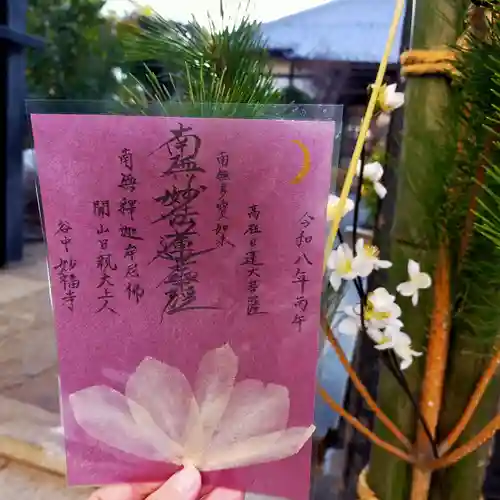 令和八年丙午
高祖日蓮大菩薩
南無多寶如来
南無妙法蓮華経
南無釋迦牟尼佛
開山日親大上人
谷中 妙福寺